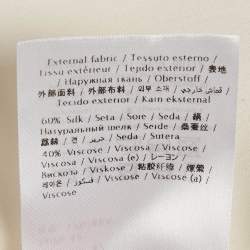 External fabric / Tessuto esterno /
Tissu extérieur / Tejido exterior / 表地
/ Наружная ткань / Oberstoff /
外部面料 / 外部布料 / 외부 소재 / قماش خارجي /
Tecido exterior / Kain eksternal
60% Silk / Seta / Soie / Seda / 絹 /
Натуральный шелк / Seide / 桑蚕丝 /
蠶絲 / 견 / حرير / Seda / Sutera
40% Viscose / Viscosa / Viscose /
Viscosa / Viscosa (e) / レーヨン /
Вискоза / Viskose / 粘胶纤维 / 嫘縈
/ 레이온 / فسكوز / Viscose / Viscose (a) /
Viscose